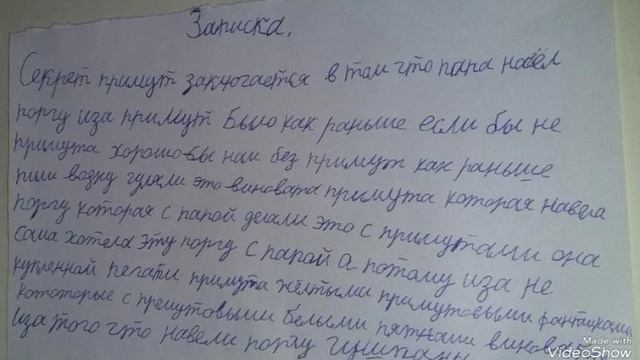 Записка.
Секрет примут заключается в том что папа навёл
поргу иза примут Было как раньше если бы не
примута хорошо бы нам без примут как раньше
пили водку гуляли это виновата примута которая навела
поргу которая с папой делали это с примутами она
сама хотела эту поргу с папой а потому иза не
купленной печати примута жёлтыми примутовыми фантиками
кототорые с премутовыми белыми пятнами виноват
иза того что навели поргу
Made with
VideoShow